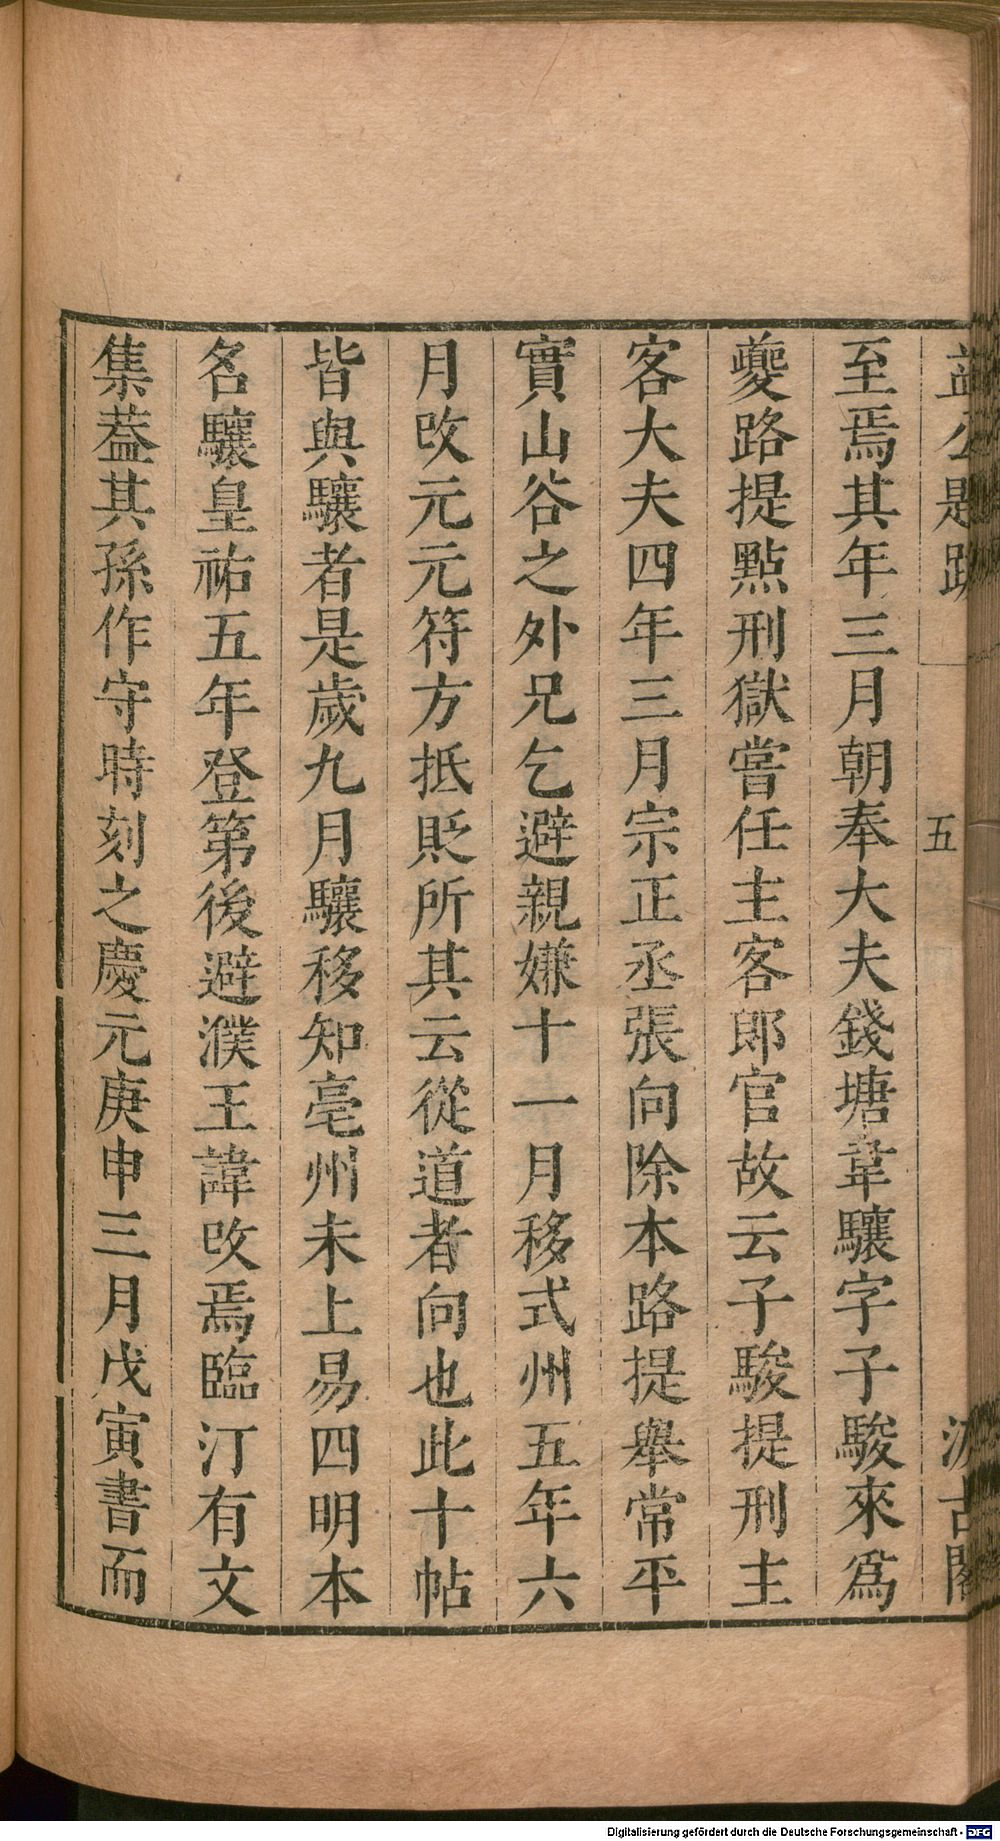 益公題跋 五 汲古閣
至焉其年三月朝奉大夫錢塘韋驤字子駿來爲
夔路提點刑獄嘗任主客郎官故云子駿提刑主
客大夫四年三月宗正丞張向除本路提舉常平
實山谷之外兄乞避親嫌十一月移式州五年六
月改元元符方抵貶所其云從道者向也此十帖
皆與驤者是歲九月驤移知亳州未上易四明本
名驤皇祐五年登第後避濮王諱改焉臨汀有文
集葢其孫作守時刻之慶元庚申三月戊寅書而
Digitalisierung gefördert durch die Deutsche Forschungsgemeinschaft - DFG